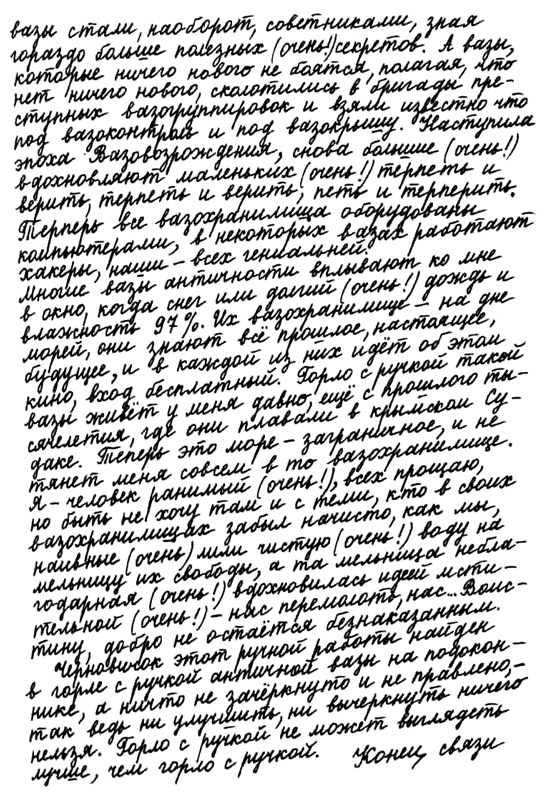 вазы стали, наоборот, советниками, зная
гораздо больше полезных (очень!) секретов. А вазы,
которые ничего нового не боятся, полагая, что
нет ничего нового, сколотились в бригады пре-
ступных вазогруппировок и взяли известно что
под вазоконтроль и под вазокрышу. Наступила
эпоха Вазовозрождения, снова большие (очень!)
вдохновляют маленьких (очень!) терпеть и
верить, терпеть и верить, петь и терперить.
Терперь все вазохранилища оборудованы
компьютерами, в некоторых вазах работают
хакеры, наши – всех гениальней.
Многие вазы античности вплывают ко мне
в окно, когда снег или долгий (очень!) дождь и
влажность 97%. Их вазохранилище – на дне
морей, они знают всё прошлое, настоящее,
будущее, и в каждой из них идёт об этом
кино, вход бесплатный. Горло с ручкой такой
вазы живёт у меня давно, ещё с прошлого ты-
сячелетия, где они плавали в крымском Су-
даке. Теперь это море – заграничное, и не
тянет меня совсем в то вазохранилище.
Я – человек ранимый (очень!), всех прощаю,
но быть не хочу там и с теми, кто в своих
вазохранилищах забыл начисто, как мы,
наивные (очень) лили чистую (очень!) воду на
мельницу их свободы, а та мельница небла-
годарная (очень!) вдохновилась идеей мсти-
тельной (очень!) – нас перемолоть, нас... Воис-
тину, добро не остаётся безнаказанным.
Черновичок этот ручной работы найден
в горле с ручкой античной вазы на подокон-
нике, а ничто не зачёркнуто и не правлено, –
так ведь ни улучшить, ни вычеркнуть ничего
нельзя. Горло с ручкой не может выглядеть
лучше, чем горло с ручкой. Конец связи